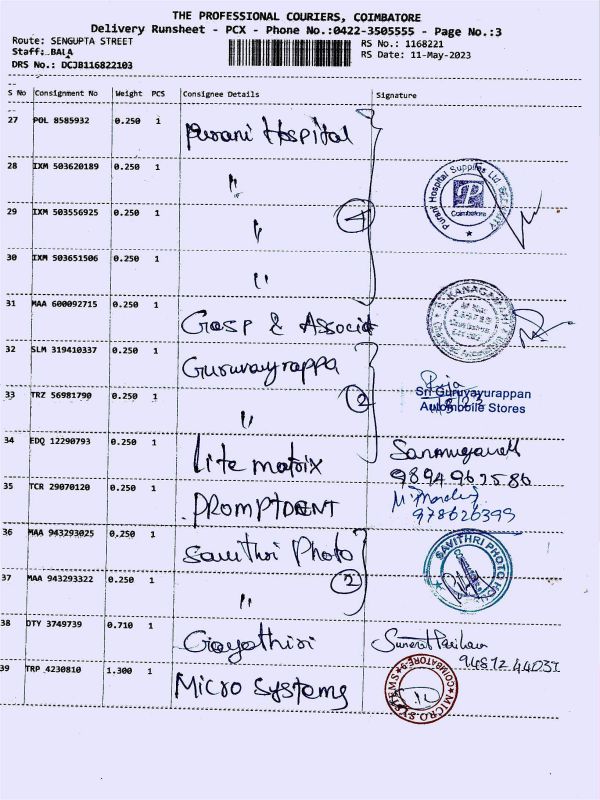 THE PROFESSIONAL COURIERS, COIMBATORE
Delivery Runsheet - PCX - Phone No.:0422-3505555 - Page No.:3
Route: SENGUPTA STREET RS No.: 1168221
Staff:.BALA RS Date: 11-May-2023
DRS No.: DCJB116822103
S No Consignment No Weight PCS Consignee Details Signature
27 POL 8585932 0.250 1 Purani Hospital
28 IXM 503620189 0.250 1 "
Purani Hospital Supplies Ltd
Coimbatore
29 IXM 503556925 0.250 1 " 4
30 IXM 503651506 0.250 1 "
31 MAA 600092715 0.250 1 Gasp & Associat
32 SLM 319410337 0.250 1 Guruvayrappa
33 TRZ 56981790 0.250 1 " 2
Sri Guruvayurappan
Automobile Stores
34 EDQ 12290793 0.250 1 Lite matrix
35 TCR 29070120 0.250 1 PROMPTDENT
36 MAA 943293025 0.250 1 Savithri Photo
SAVITHRI PHOTO
37 MAA 943293322 0.250 1 " 2
38 DTY 3749739 0.710 1 Gayathiri
94872 44037
39 TRP 4230810 1.300 1 Micro Systems
MICRO SYSTEMS COIMBATORE-9